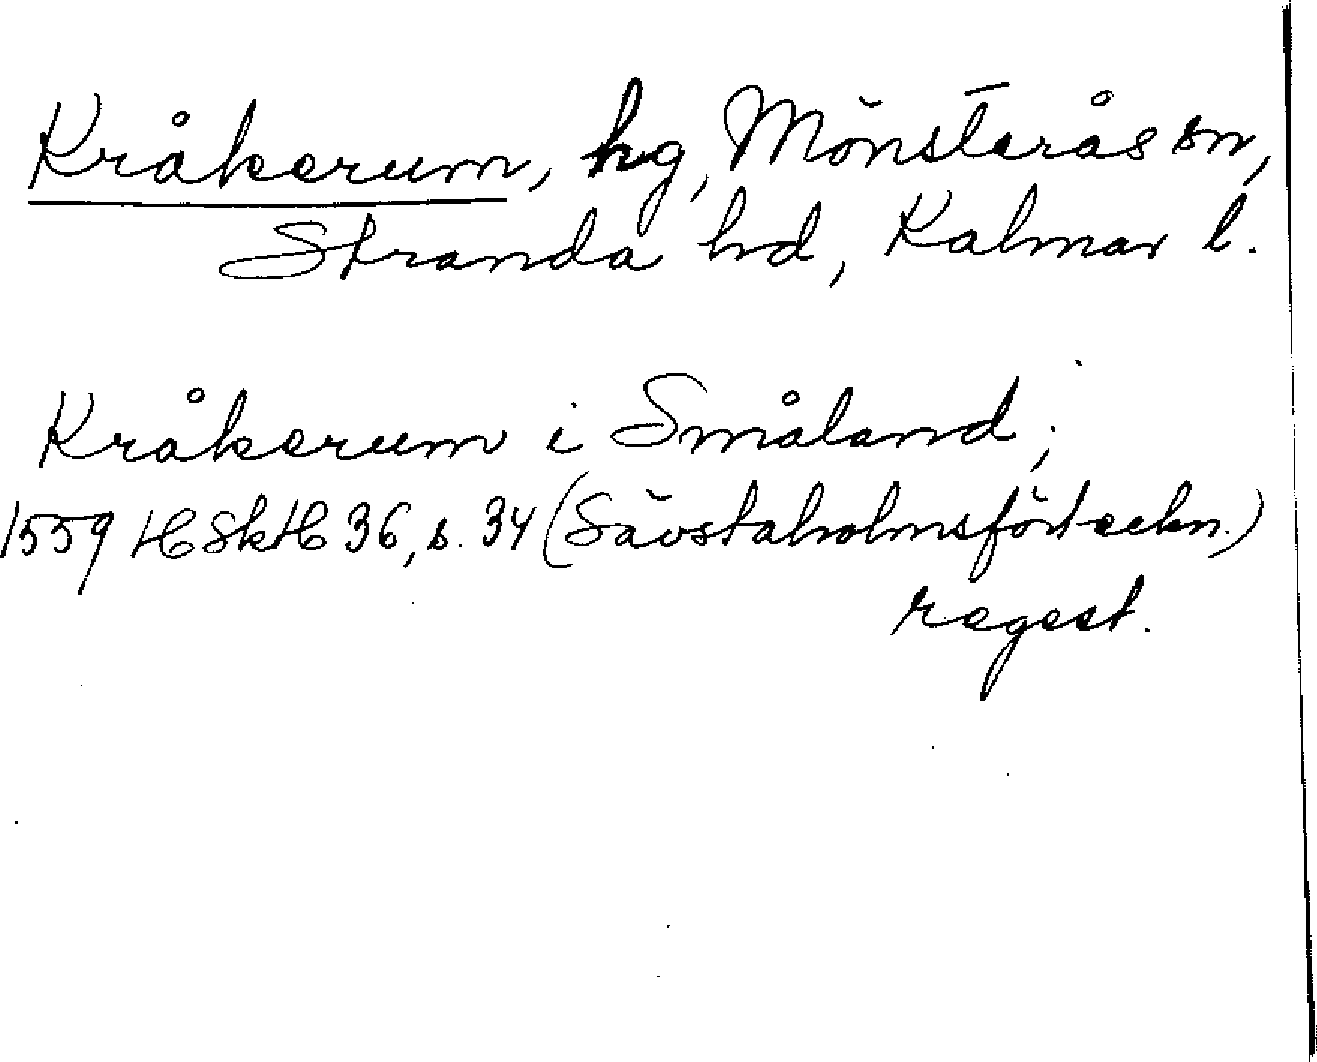 Kråkerum, hg, Mönsterås sn,
Stranda hd, Kalmar l.
Kråkerum i Småland;
1559 HSkH 36, s. 34 (Sävstaholmsförteckn.)
regest.